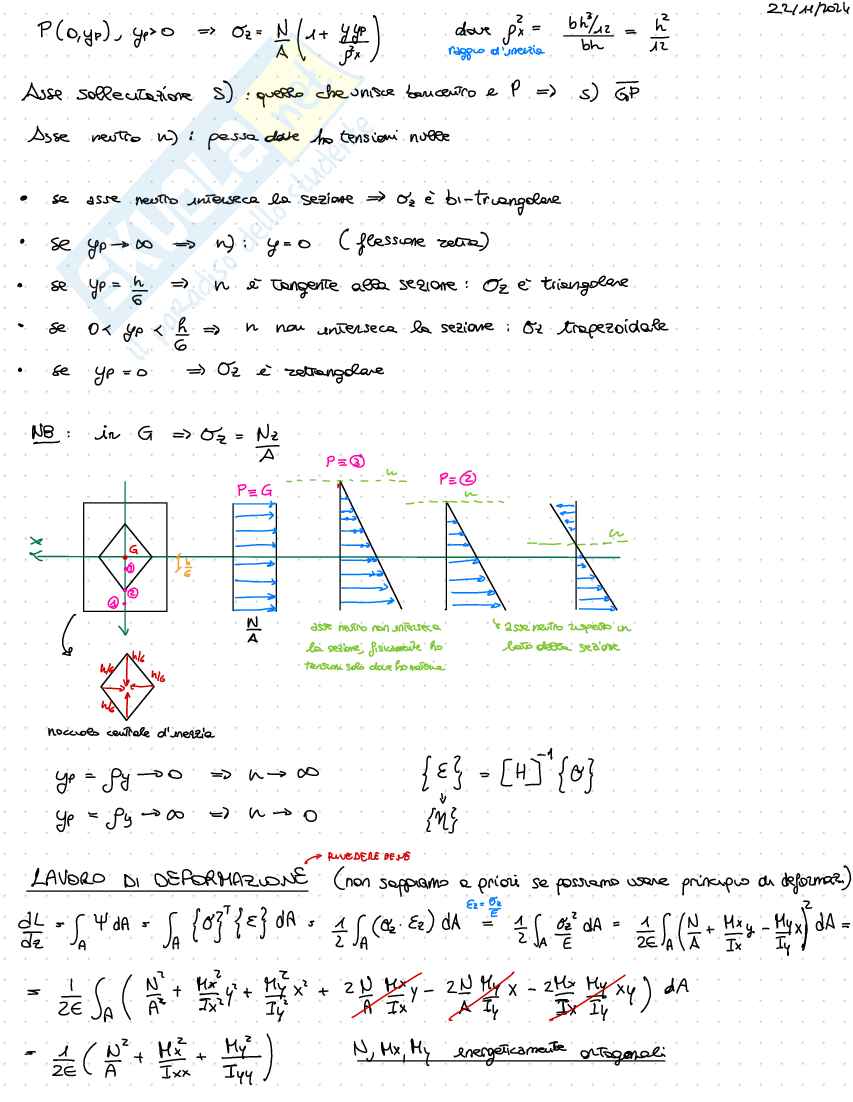 22/11/2024
P(0,yp), yp>0 ⇒ σz = N/A (1 + y yp/ρx²) dove ρx² = (bh³/12)/(bh) = h²/12
raggio d'inerzia
Asse sollecitazione s) : quello che unisce baricentro e P ⇒ s) GP
Asse neutro n) : passa dove ho tensioni nulle
• se asse neutro interseca la sezione ⇒ σz è bi-triangolare
• se yp → ∞ ⇒ n) : y = 0 (flessione retta)
• se yp = h/6 ⇒ n è tangente alla sezione : σz è triangolare
• se 0 < yp < h/6 ⇒ n non interseca la sezione : σz trapezoidale
• se yp = 0 ⇒ σz è rettangolare
NB : in G ⇒ σz = Nz/A
P≡G P≡③ n P≡② n n
x G ③ ② ① h/6
N/A
asse neutro non interseca
la sezione, fisicamente ho
tensioni solo dove ho materia
asse neutro rispetto un
lato della sezione
h/6 h/6 h/6 h/6
nocciolo centrale d'inerzia
yp = ρy → 0 ⇒ n → ∞ {ε} = [H]⁻¹{σ}
yp = ρy → ∞ ⇒ n → 0 {η}
→ RIVEDERE BENE
LAVORO DI DEFORMAZIONE (non sappiamo a priori se possiamo usare principio di deformaz)
dL/dz = ∫A Ψ dA = ∫A {σ}ᵀ{ε} dA = 1/2 ∫A (σz · εz) dA = 1/2 ∫A σz²/E dA = 1/2E ∫A (N/A + Mx/Ix y − My/Iy x)² dA =
εz = σz/E
= 1/2E ∫A (N²/A² + Mx²/Ix² y² + My²/Iy² x² + 2 N/A Mx/Ix y − 2N/A My/Iy x − 2Mx/Ix My/Iy xy) dA
= 1/2E (N²/A + Mx²/Ixx + My²/Iyy) N, Mx, My energeticamente ortogonali
SKUOLA.net
il paradiso dello studente